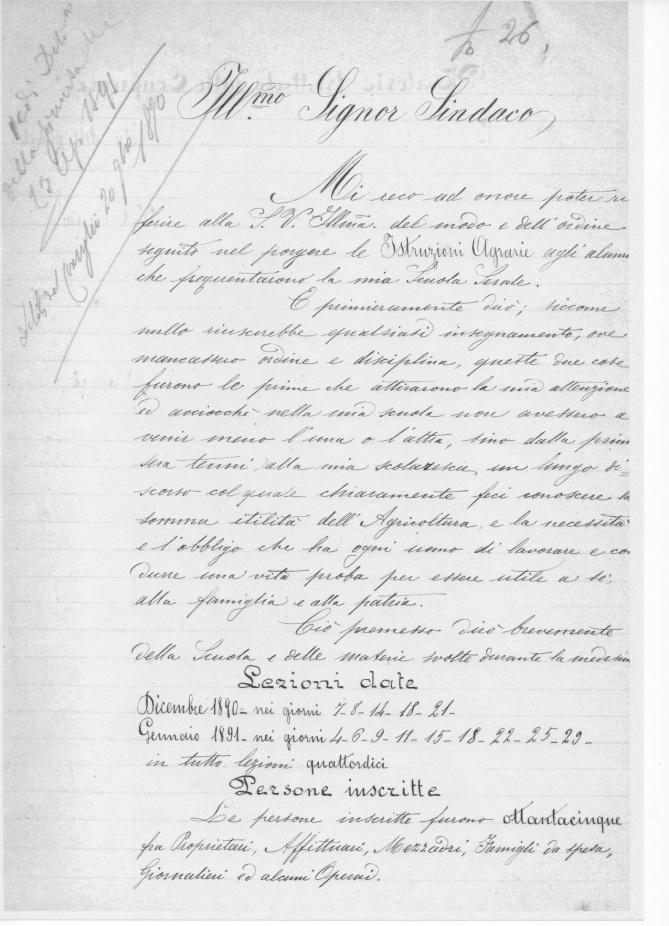 26,
Vedi Delib.
della Giunta
1891
Delib. del Consiglio 20 9bre 1890
Ill.mo Signor Sindaco
Mi reco ad onore poter re
ferire alla S. V. Illma. del modo e dell'ordine
seguito nel porgere le Istruzioni Agrarie agli alunn
che frequentarono la mia Scuola Serale.
E primieramente dirò; siccome
nullo riuscirebbe qualsiasi insegnamento, ove
mancassero ordine e disciplina, queste due cose
furono le prime che attirarono la mia attenzione
ed acciocchè nella mia scuola non avessero a
venir meno l'una o l'altra, sino dalla prim
sera tenni, alla mia scolaresca, un lungo di=
scorso col quale chiaramente feci conoscere la
somma utilità dell'Agricoltura, e la necessità
e l'obbligo che ha ogni uomo di lavorare e con
durre una vita proba per essere utile a sè,
alla famiglia e alla patria.
Ciò premesso dirò brevemente
della Scuola e delle materie svolte durante la medesim
Lezioni date
Dicembre 1890 - nei giorni 7 - 8 - 14 - 18 - 21 -
Gennaio 1891 - nei giorni 4 - 6 - 9 - 11 - 15 - 18 - 22 - 25 - 29 -
in tutto lezioni quattordici
Persone inscritte
Le persone inscritte furono ottantacinque
fra Proprietari, Affittuari, Mezzadri, Famigli da spesa,
Giornalieri ed alcuni Operai.